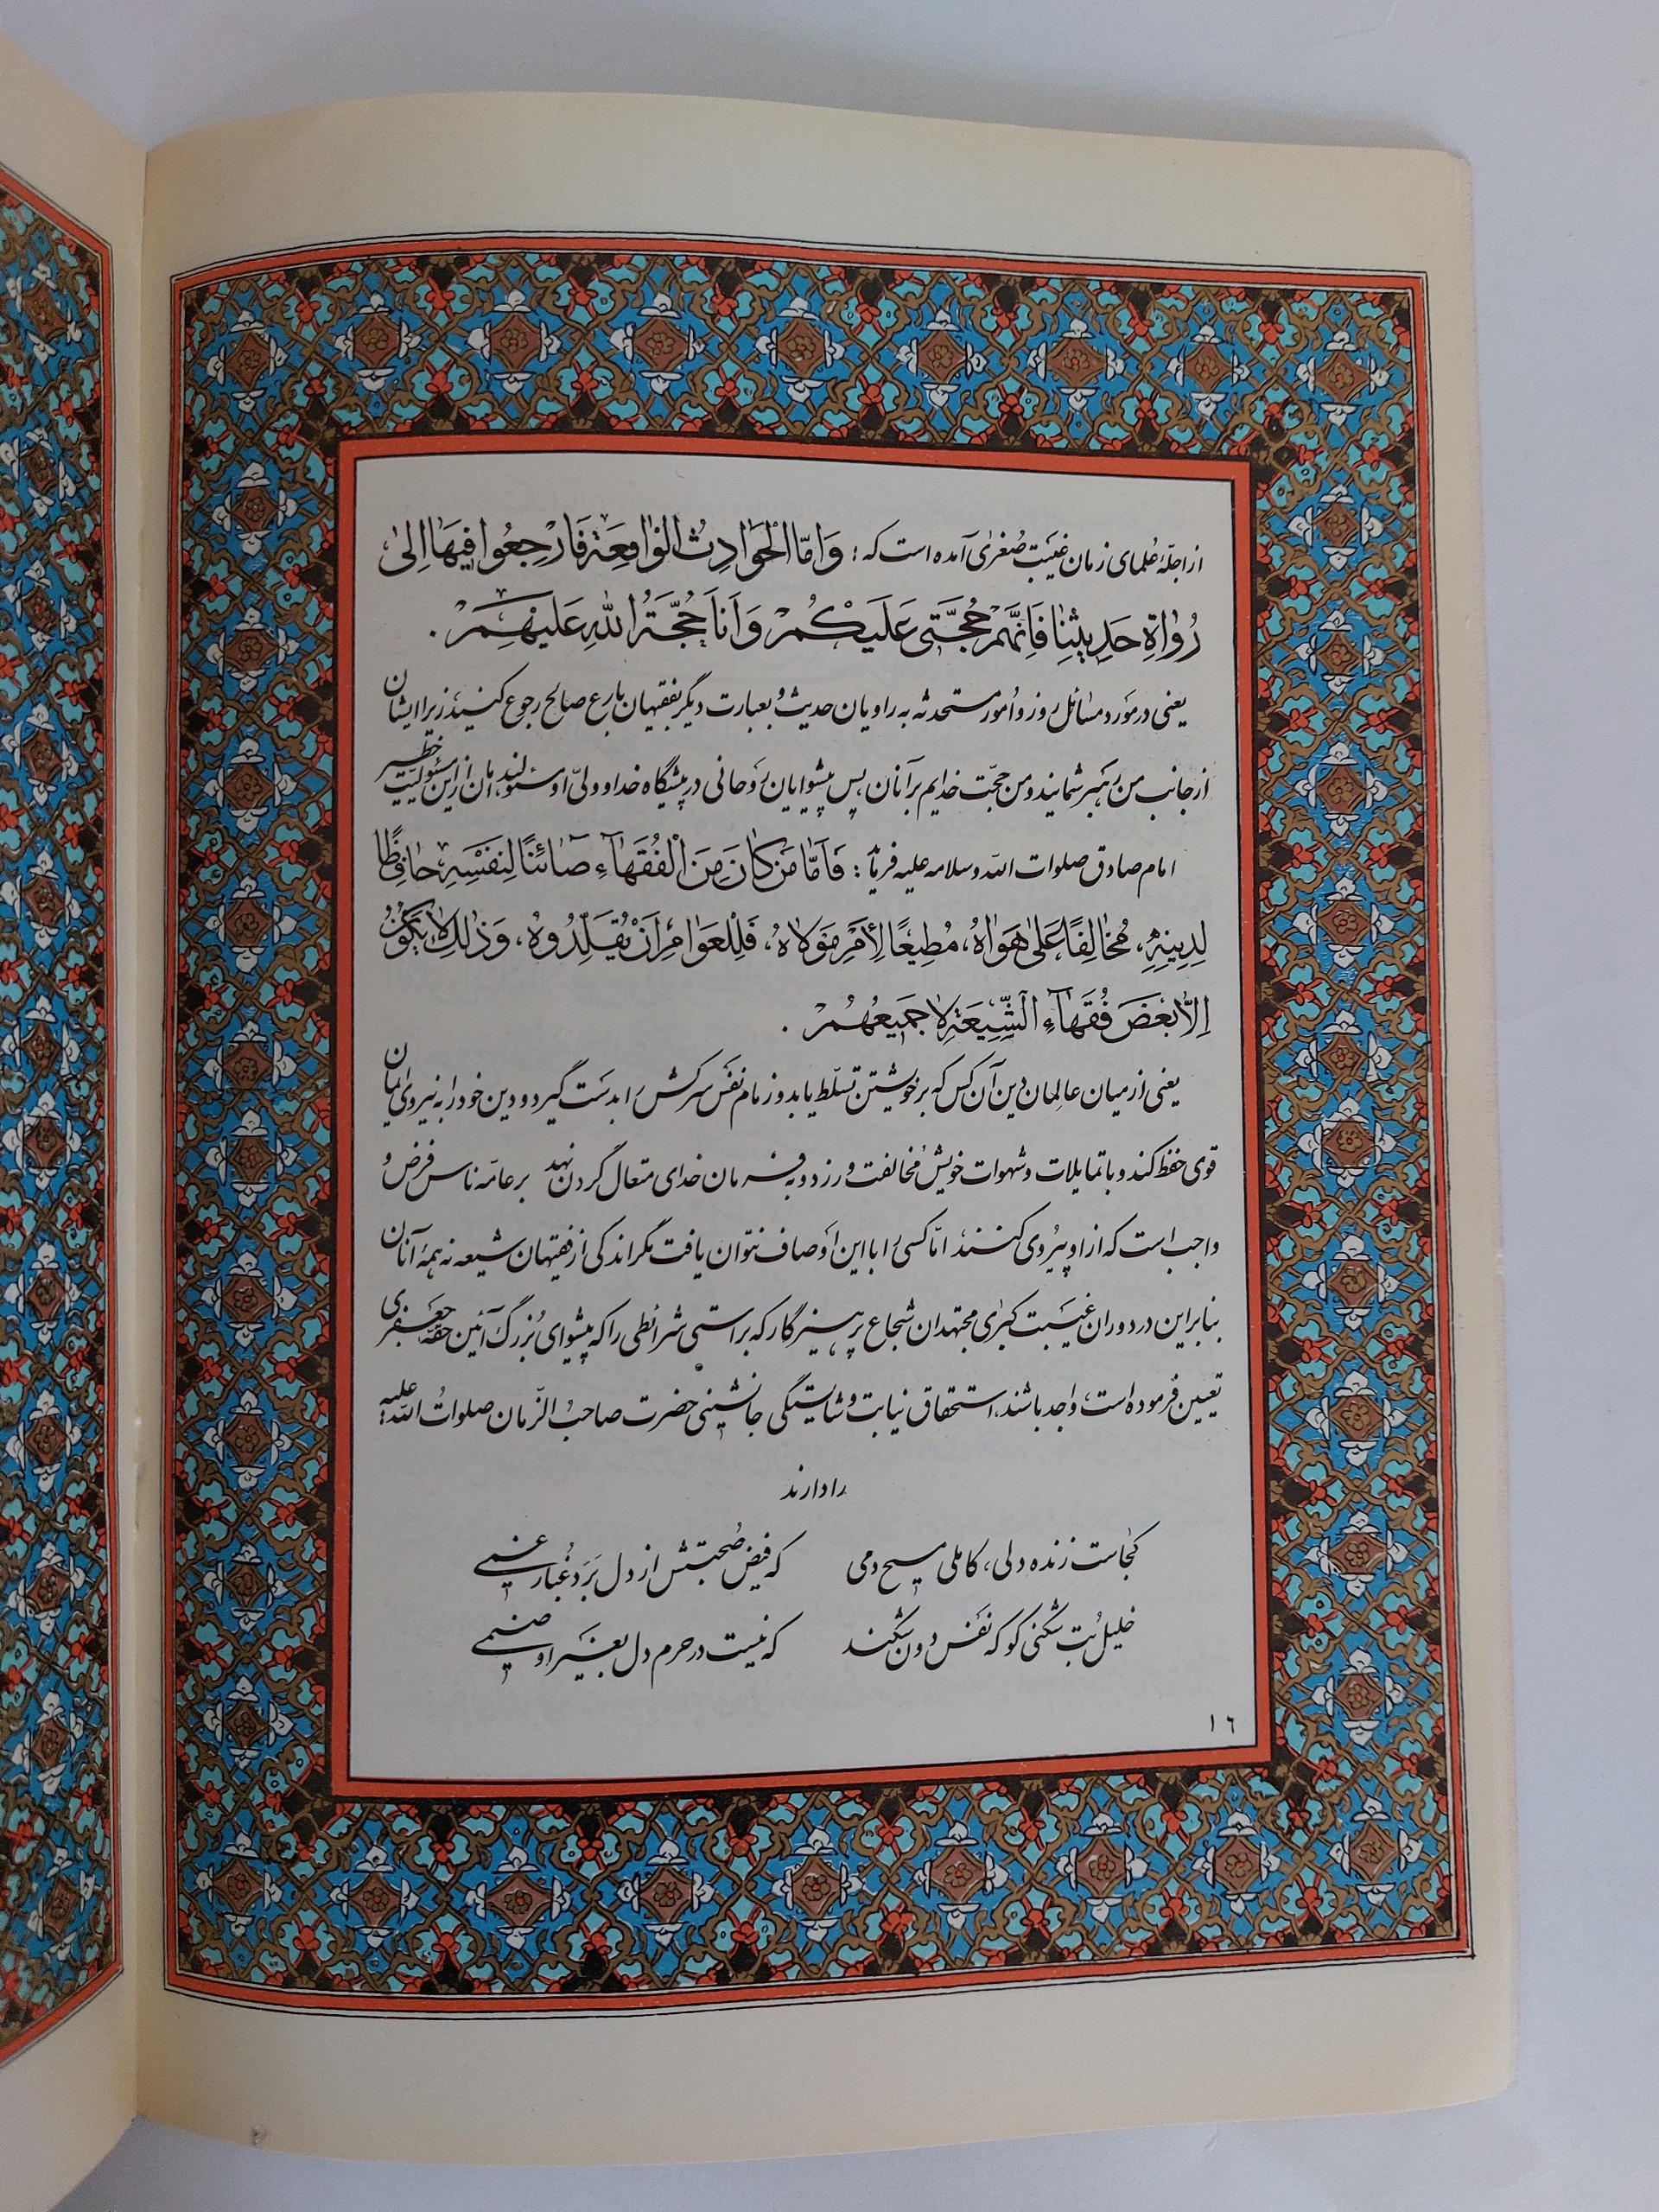 از اجلّهٔ عُلمای زمان غیبت صُغریٰ آمده است که : وَاَمَّا الْحَوٰادِثُ الْوٰاقِعَةُ فَارْجِعُوا فیهٰا اِلیٰ
رُوٰاةِ حَدِیثِنٰا فَاِنَّهُمْ حُجَّتی عَلَیْکُمْ وَ اَنَا حُجَّةُ اللهِ عَلَیْهِمْ .
یعنی در مَورد مسائل روز و اُمور مستحدثه به راویان حدیث و بعبارت دیگر بفقیهان بارع صالح رجوع کنیند زیرا ایشان
از جانب من رَهبر شمایند و من حجّت خدایم بر آنان پس پیشوایان رُوحانی در پیشگاه خدا و ولیّ او مسئولند، هان از این مسئولیّت خطیر
امام صادق صلوات اللّه و سلامه علیه فرمٰاید : فَاَمّٰا مَنْ کٰانَ مِنَ الْفُقَهٰآءِ صٰائِنًا لِنَفْسِهِ، حٰافِظًا
لِدِینِهِ، مُخٰالِفًا عَلیٰ هَوٰاهُ، مُطِیعًا لِاَمْرِ مَوْلاٰهُ، فَلِلْعَوٰامِ اَنْ یُقَلِّدُوهُ، وَ ذٰلِكَ لاٰ یَکُونُ
اِلاّٰ بَعْضَ فُقَهٰآءِ الشِّیعَةِ لاٰ جَمِیعُهُمْ .
یعنی از میان عالِمان دین آن کس که بر خویشتن تسلّط یابد و زمام نَفس سرکش را بدست گیرد و دین خود را به نیروی ایمان
قوی حفظ کند و با تمایلات و شهوات خویش مُخالفت ورزد و به فرمان خدای متعال گردن نهد بر عامّه ناس فرض و
واجب است که از او پیروی کنند، امّا کسی را با این اَوصاف نتوان یافت مگر اندکی از فقیهان شیعه نه همهٔ آنان
بنابراین در دوران غیبَت کبریٰ مجتهدان شجاع پرهیزگار که براستی شرائطی را که پیشوای بُزرگ آئین حقّه جعفری
تعیین فرموده است، واجد باشند، استحقاق نیابت و شایستگی جانشینی حضرت صاحبُ الزّمان صلواتُ اللّه علیه
را دارند
کجاست زنده دلی، کاملی مسیح دمی که فیض صُحبتش از دل بَرَد غُبار غمی
خلیل بُت شکنی کو که نَفس دون شکند که نیست در حرم دل بغیر او صنمی
۱۶